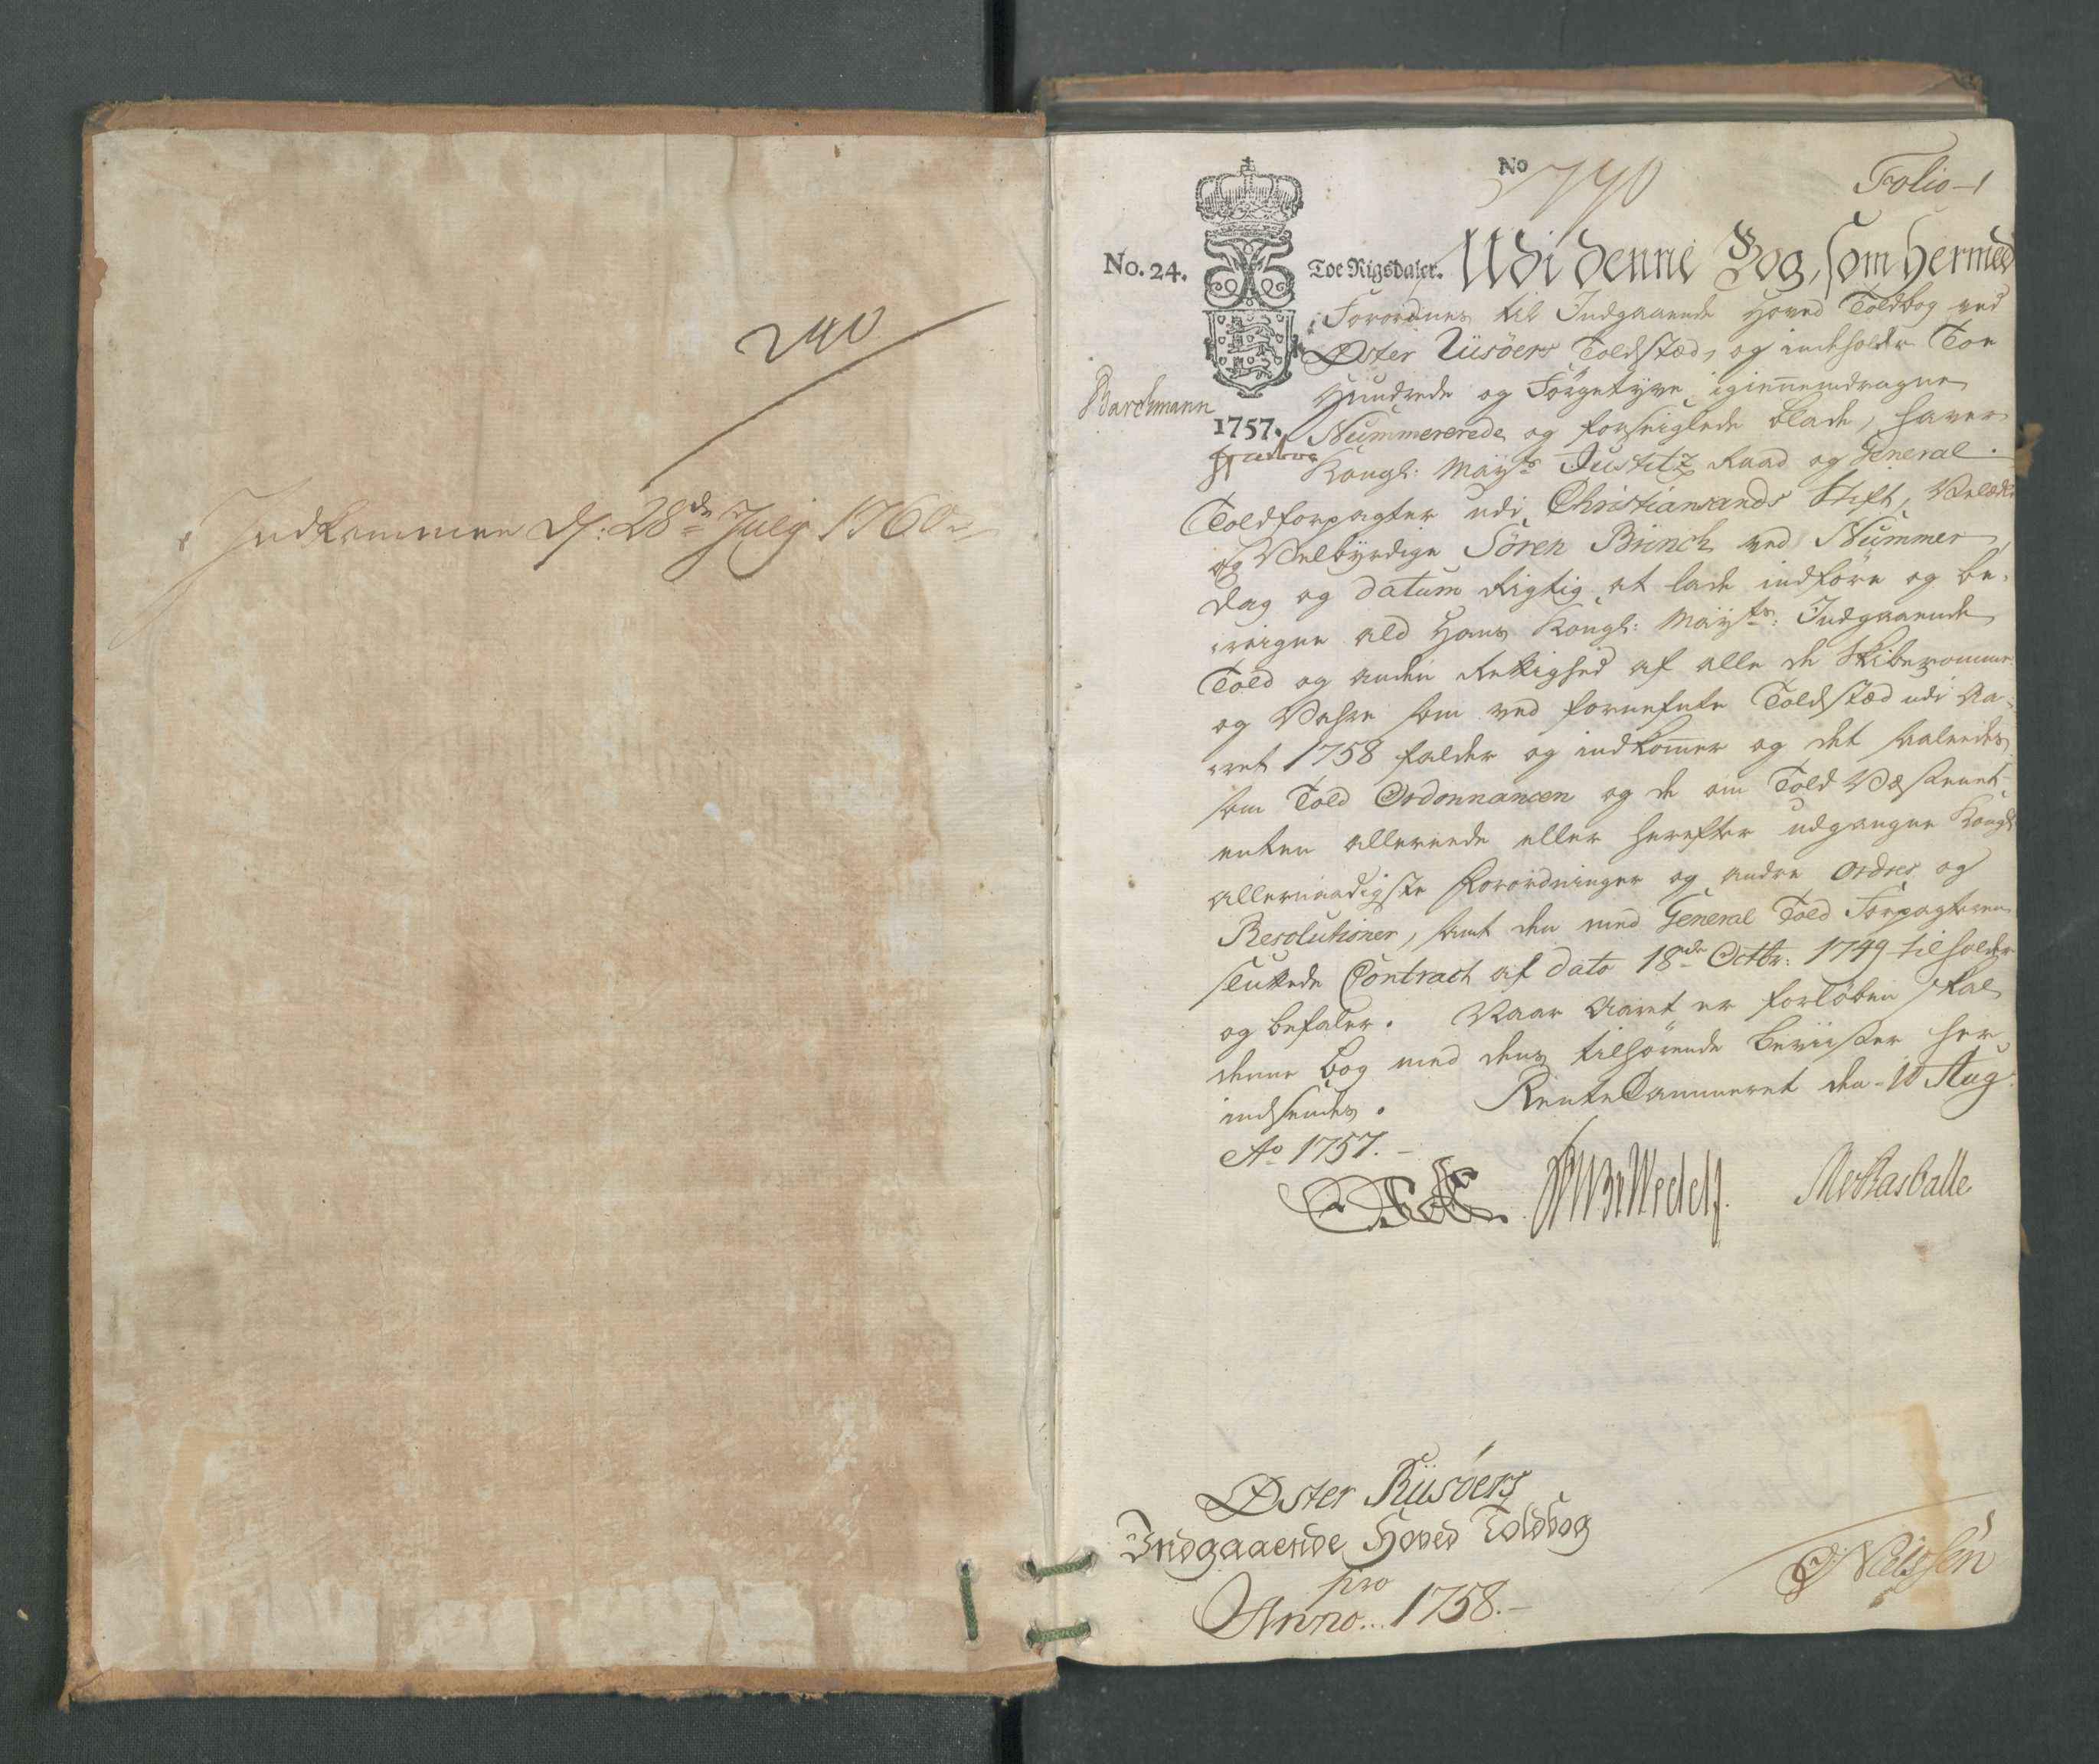 240
Indkommen d: 28de Julij 1760
No 790
Folio 1
No. 24.
Toe Rigsdaler.
Udi denne Bog, som hermed
Forordnes til Indgaaende Hoved Toldbog ved
Øster Riisøers Toldstæd, og indeholder Toe
Hundrede og Förgetyve igiennemdragne
Barchmann
1757.
Nummererede og forseiglede blade, haver
Kongl: Mayts Justitz Raad og General
Toldforpagter udi Christiansands Stift, Velædle
og Velbyrdige Sören Brinch ved Nummer,
dag og datum rigtig at lade indföre og be-
reigne ald Hans Kongl: Mayts: Indgaaende
Told og anden Rettighed af alle de Skiberomme
og Vahre som ved fornefnte Toldstæd udi Aa-
ret 1758 falder og indkommer og det saaleedes
som Told Ordonnancen og de om Told Væsenet
enten allereede eller herefter udgangne Kongl:
allernaadigste Forordninger og andre Ordres og
Resolutioner, samt den med General Told Forpagteren
sluttede Contract af dato 18de Octbr: 1749 tilholder
og befaler. Naar Aaret er forløben skal
denne bog med dens tilhörende beviister her
indsendes. RenteCammeret den 10 Aug:
Ao 1757.
Øster Riisöers
Indgaaende Hoved Toldbog
pro
Anno 1758.
Nielssen